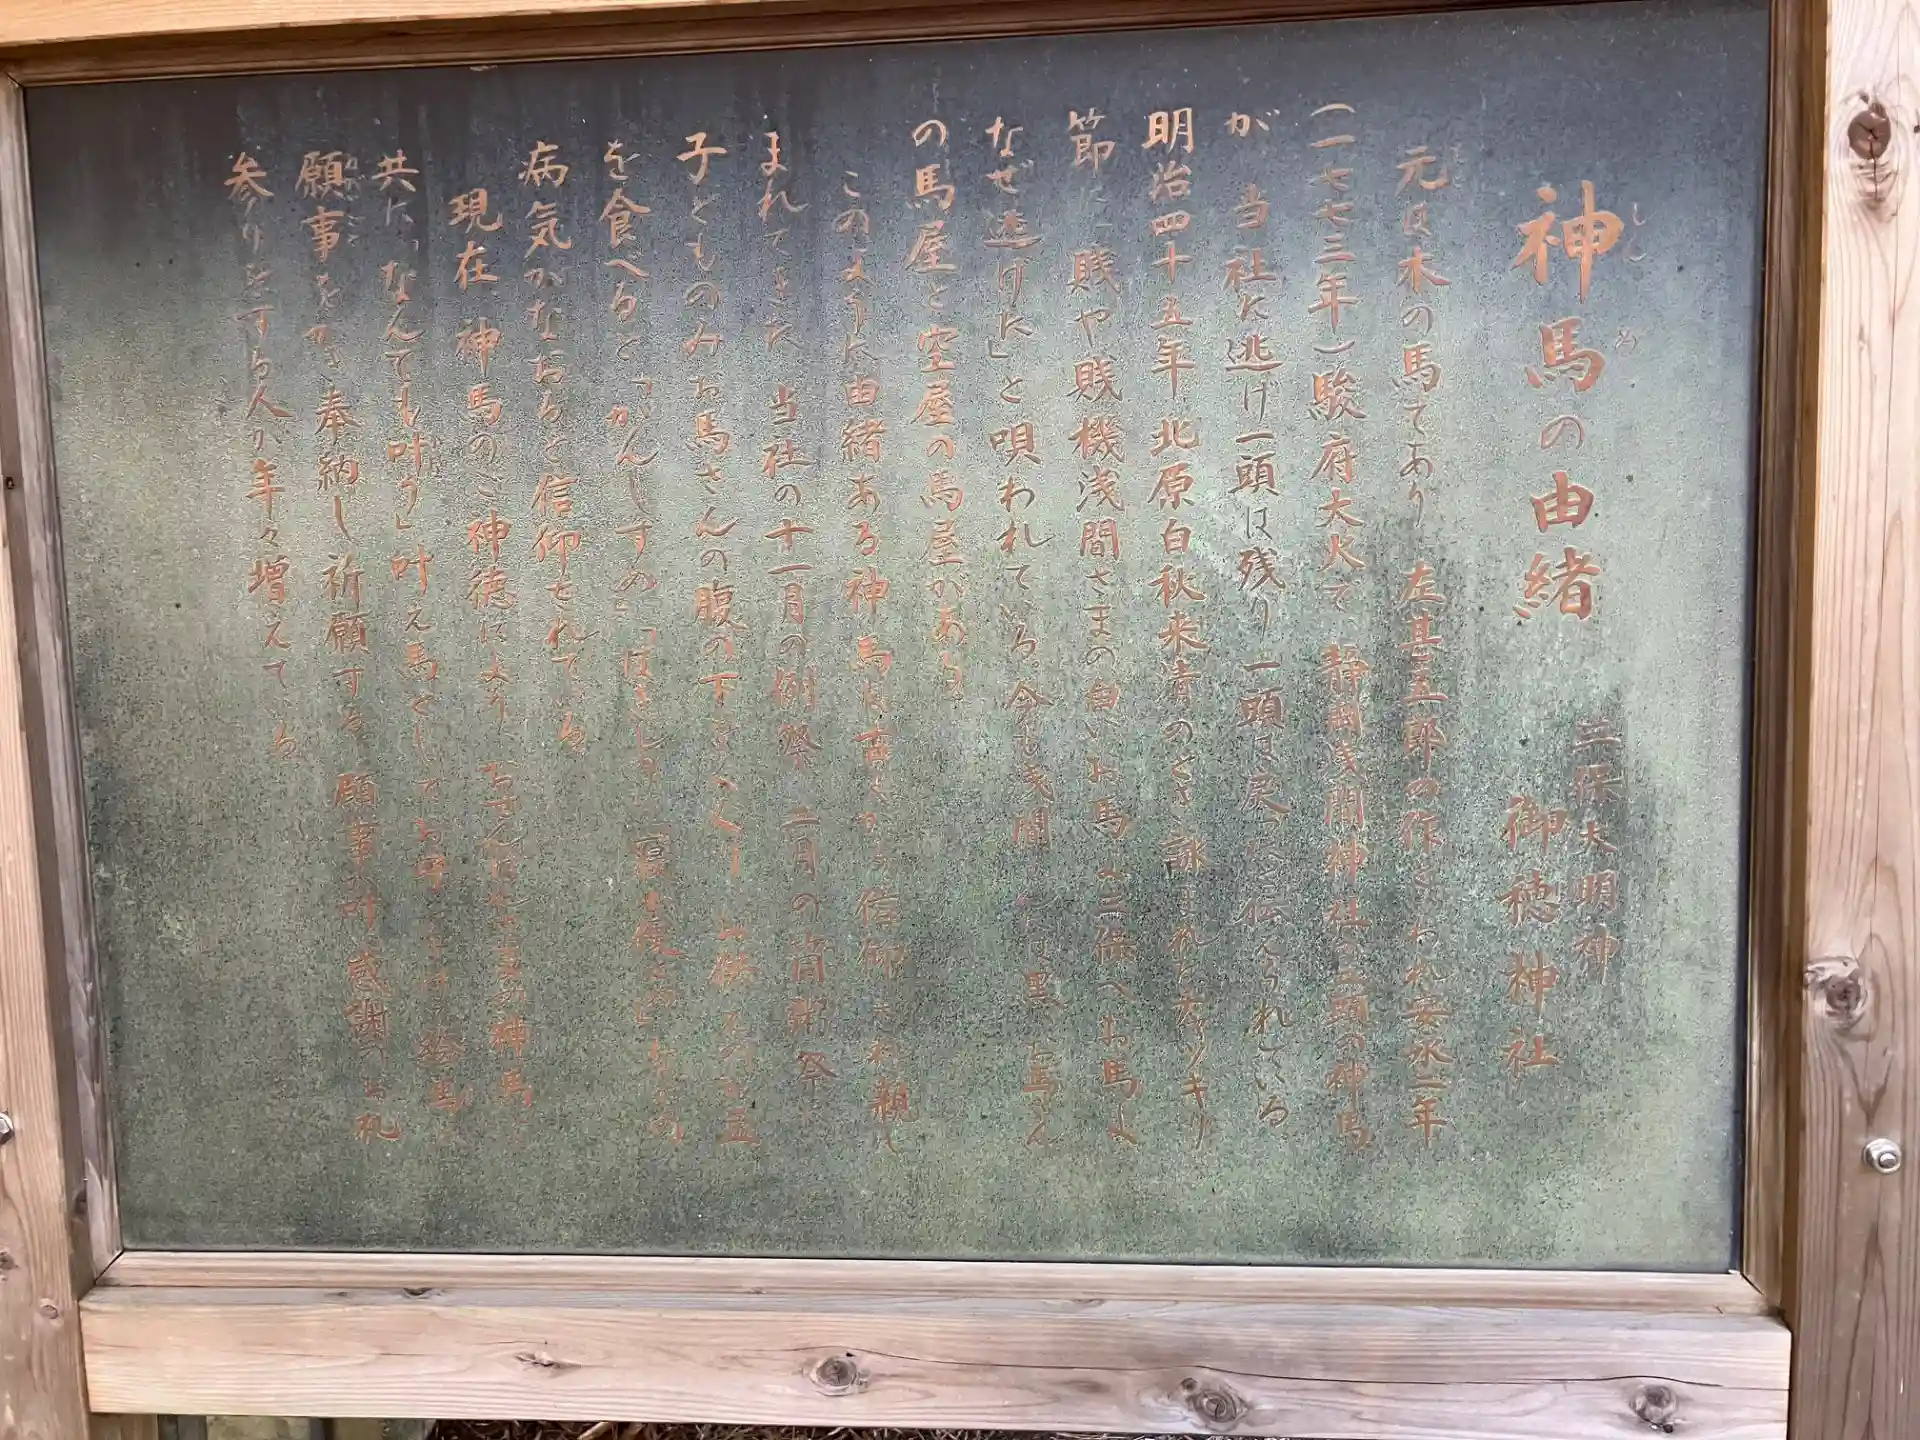 神馬の由緒
しんめ
三保大明神
御穂神社
元は木の馬であり 左甚五郎の作といわれ安永二年
(一七七三年)駿府大火で 静岡浅間神社の二頭の神馬
が 当社に逃げ一頭は残り 一頭は戻ったと伝えられている
明治四十五年 北原白秋来清のとき 詠まれた チャッキリ
節に 賎や賎機浅間さまの白いお馬よ 三保へお馬よ
なぜ逃げた」と唄われている。今も浅間 には 黒 馬さん
の馬屋と空屋の馬屋がある。
このように由緒ある神馬は古くから信仰され親し
まれてきた 当社の十一月の例祭 二月の筒粥祭に
子どものみお馬さんの腹の下をくぐり お供 五
を食べると「かんしずめ」「はぎしり」「寝小便どめ」などの
病気がなおると信仰されている
現在 神馬のご神徳により の神馬と
共に「なんでも叶う」叶え馬として お守 絵馬
願事を 奉納し祈願する 願事が叶い感謝のお札
参りをする人が年々増えている